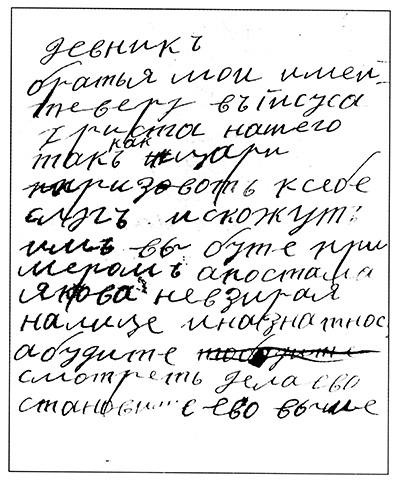 девникъ
братья мои имей
те веру въ Iисуса
христа нашего
такъ как цари
призовоть ксебе
слугъ искожутъ
имъ вы буте при
меромъ апостама
якова невзирая
налице иназнатнос
абудите
смотреть дела ево
станови сево выше